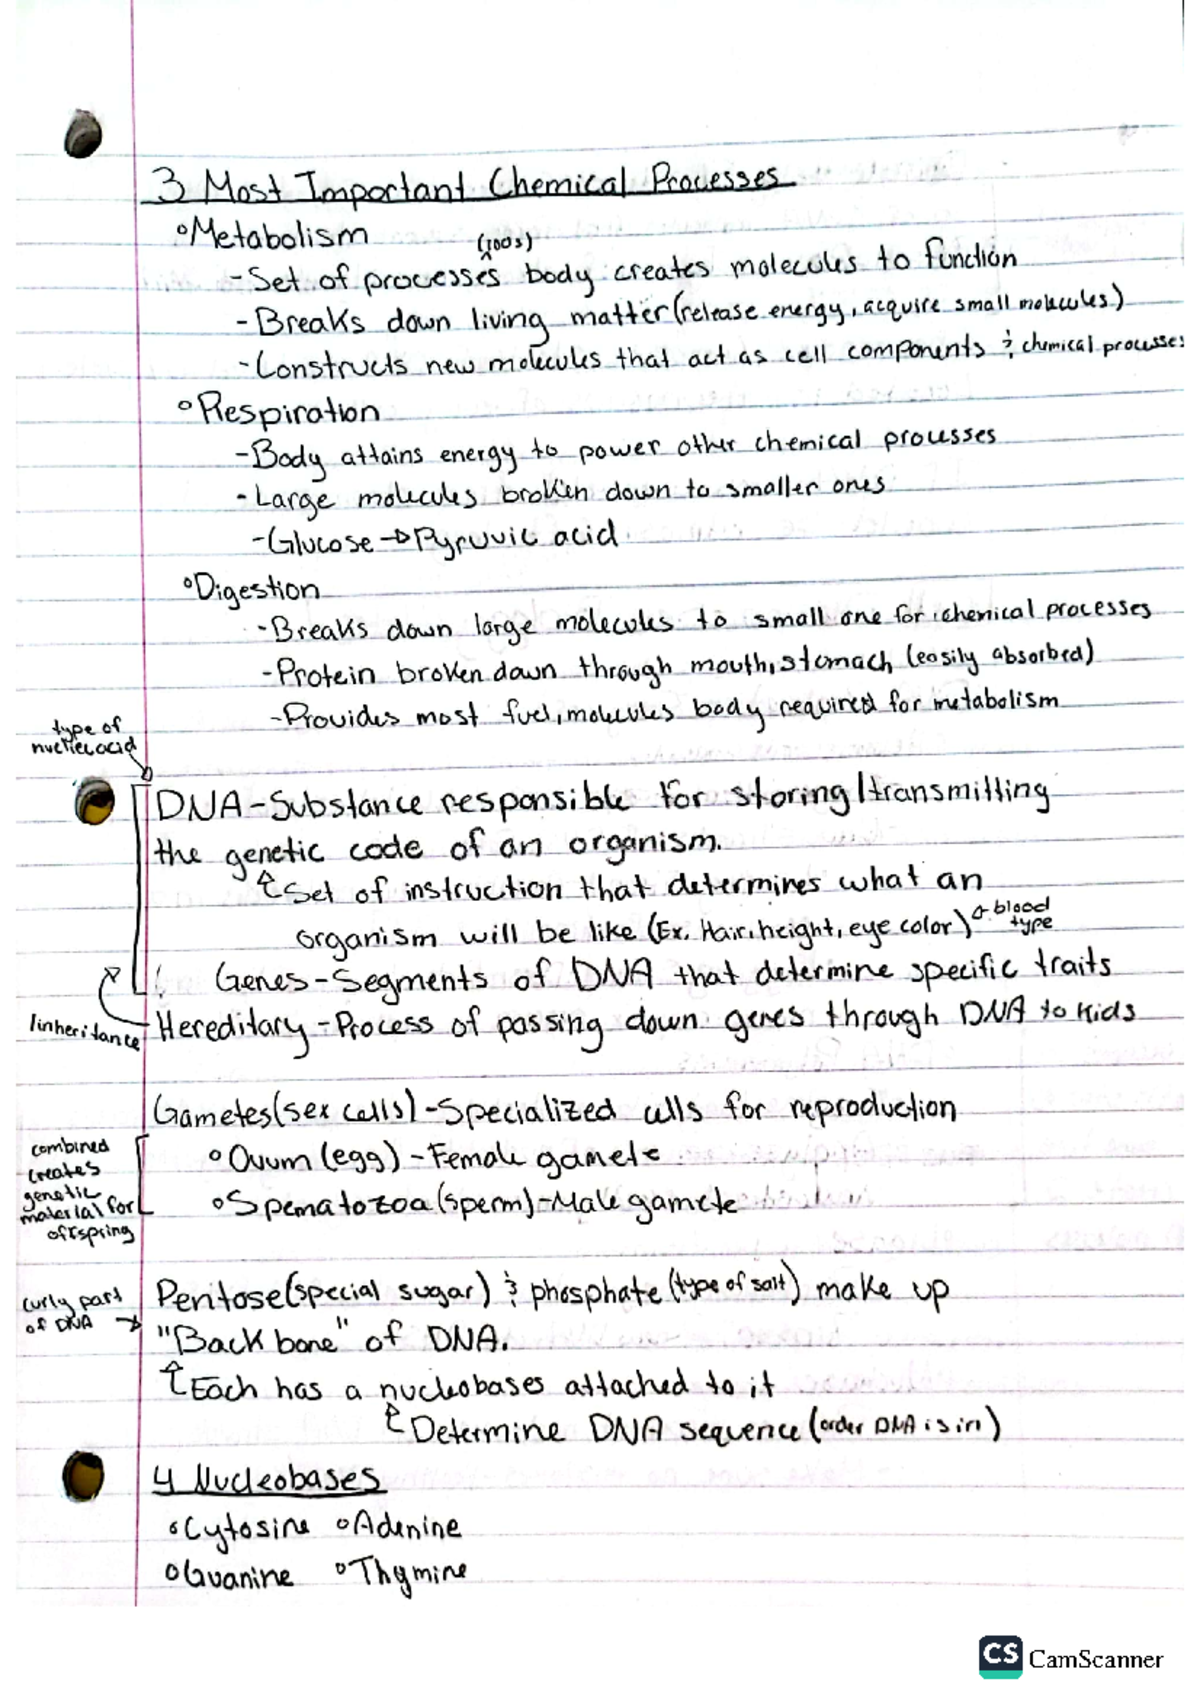 3 Most Important Chemical Processes
°Metabolism
(100s)
-Set of processes ^ body creates molecules to function
-Breaks down living matter (release energy, acquire small molecules)
-Constructs new molecules that act as cell components & chemical processes
°Respiration
-Body attains energy to power other chemical processes
-Large molecules broken down to smaller ones
-Glucose→Pyruvic acid
°Digestion
-Breaks down large molecules to small one for chemical processes
-Protein broken down through mouth, stomach (easily absorbed)
-Provides most fuel, molecules body required for metabolism
type of
nucleic acid
DNA-Substance responsible for storing/transmitting
the genetic code of an organism.
↑Set of instruction that determines what an
organism will be like (Ex. Hair, height, eye color) ← blood
type
Genes-Segments of DNA that determine specific traits
inheritance
Hereditary-Process of passing down genes through DNA to kids
Gametes (sex cells)-Specialized cells for reproduction
combined
creates
genetic
material for
offspring
°Ovum (egg)-Female gamete
°Spematozoa (sperm)-Male gamete
curly part
of DNA →
Pentose (special sugar) & phosphate (type of salt) make up
"Back bone" of DNA.
↑Each has a nucleobases attached to it
↑Determine DNA sequence (order DNA is in)
4 Nucleobases
°Cytosine °Adenine
°Guanine °Thymine
CS CamScanner